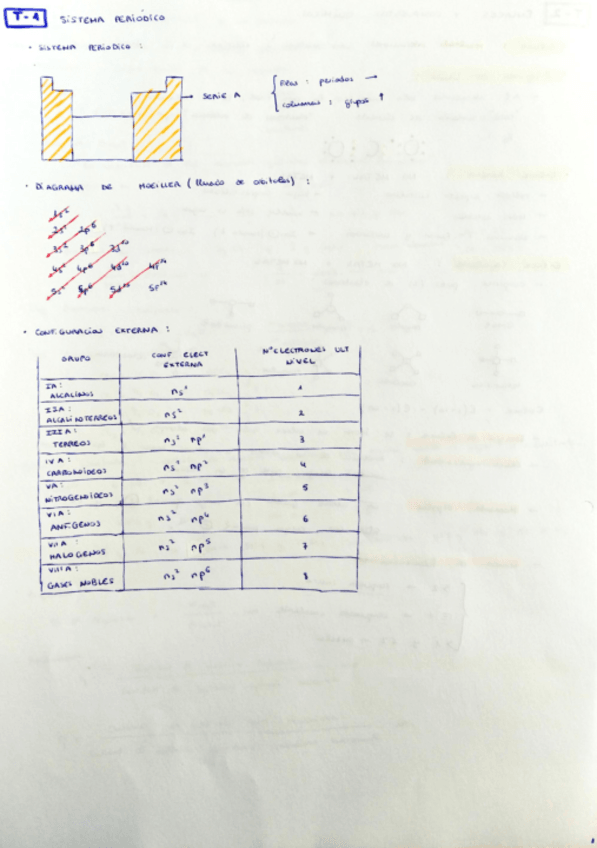 T-1 SISTEMA PERIÓDICO
· SISTEMA PERIODICO :
SERIE A
filas : periodos →
columnas : grupos ↑
· DIAGRAMA DE MOELLER (llenado de orbitales) :
1s²
2s² 2p⁶
3s² 3p⁶ 3d¹⁰
4s² 4p⁶ 4d¹⁰ 4f¹⁴
5s² 5p⁶ 5d¹⁰ 5f¹⁴
· CONFIGURACION EXTERNA :
GRUPO CONF ELECT EXTERNA Nº ELECTRONES ULT NIVEL
IA : ALCALINOS ns¹ 1
IIA : ALCALINOTERREOS ns² 2
IIIA : TERREOS ns² np¹ 3
IVA : CARBONOIDEOS ns² np² 4
VA : NITROGENOIDEOS ns² np³ 5
VIA : ANFIGENOS ns² np⁴ 6
VIIA : HALOGENOS ns² np⁵ 7
VIIIA : GASES NOBLES ns² np⁶ 8